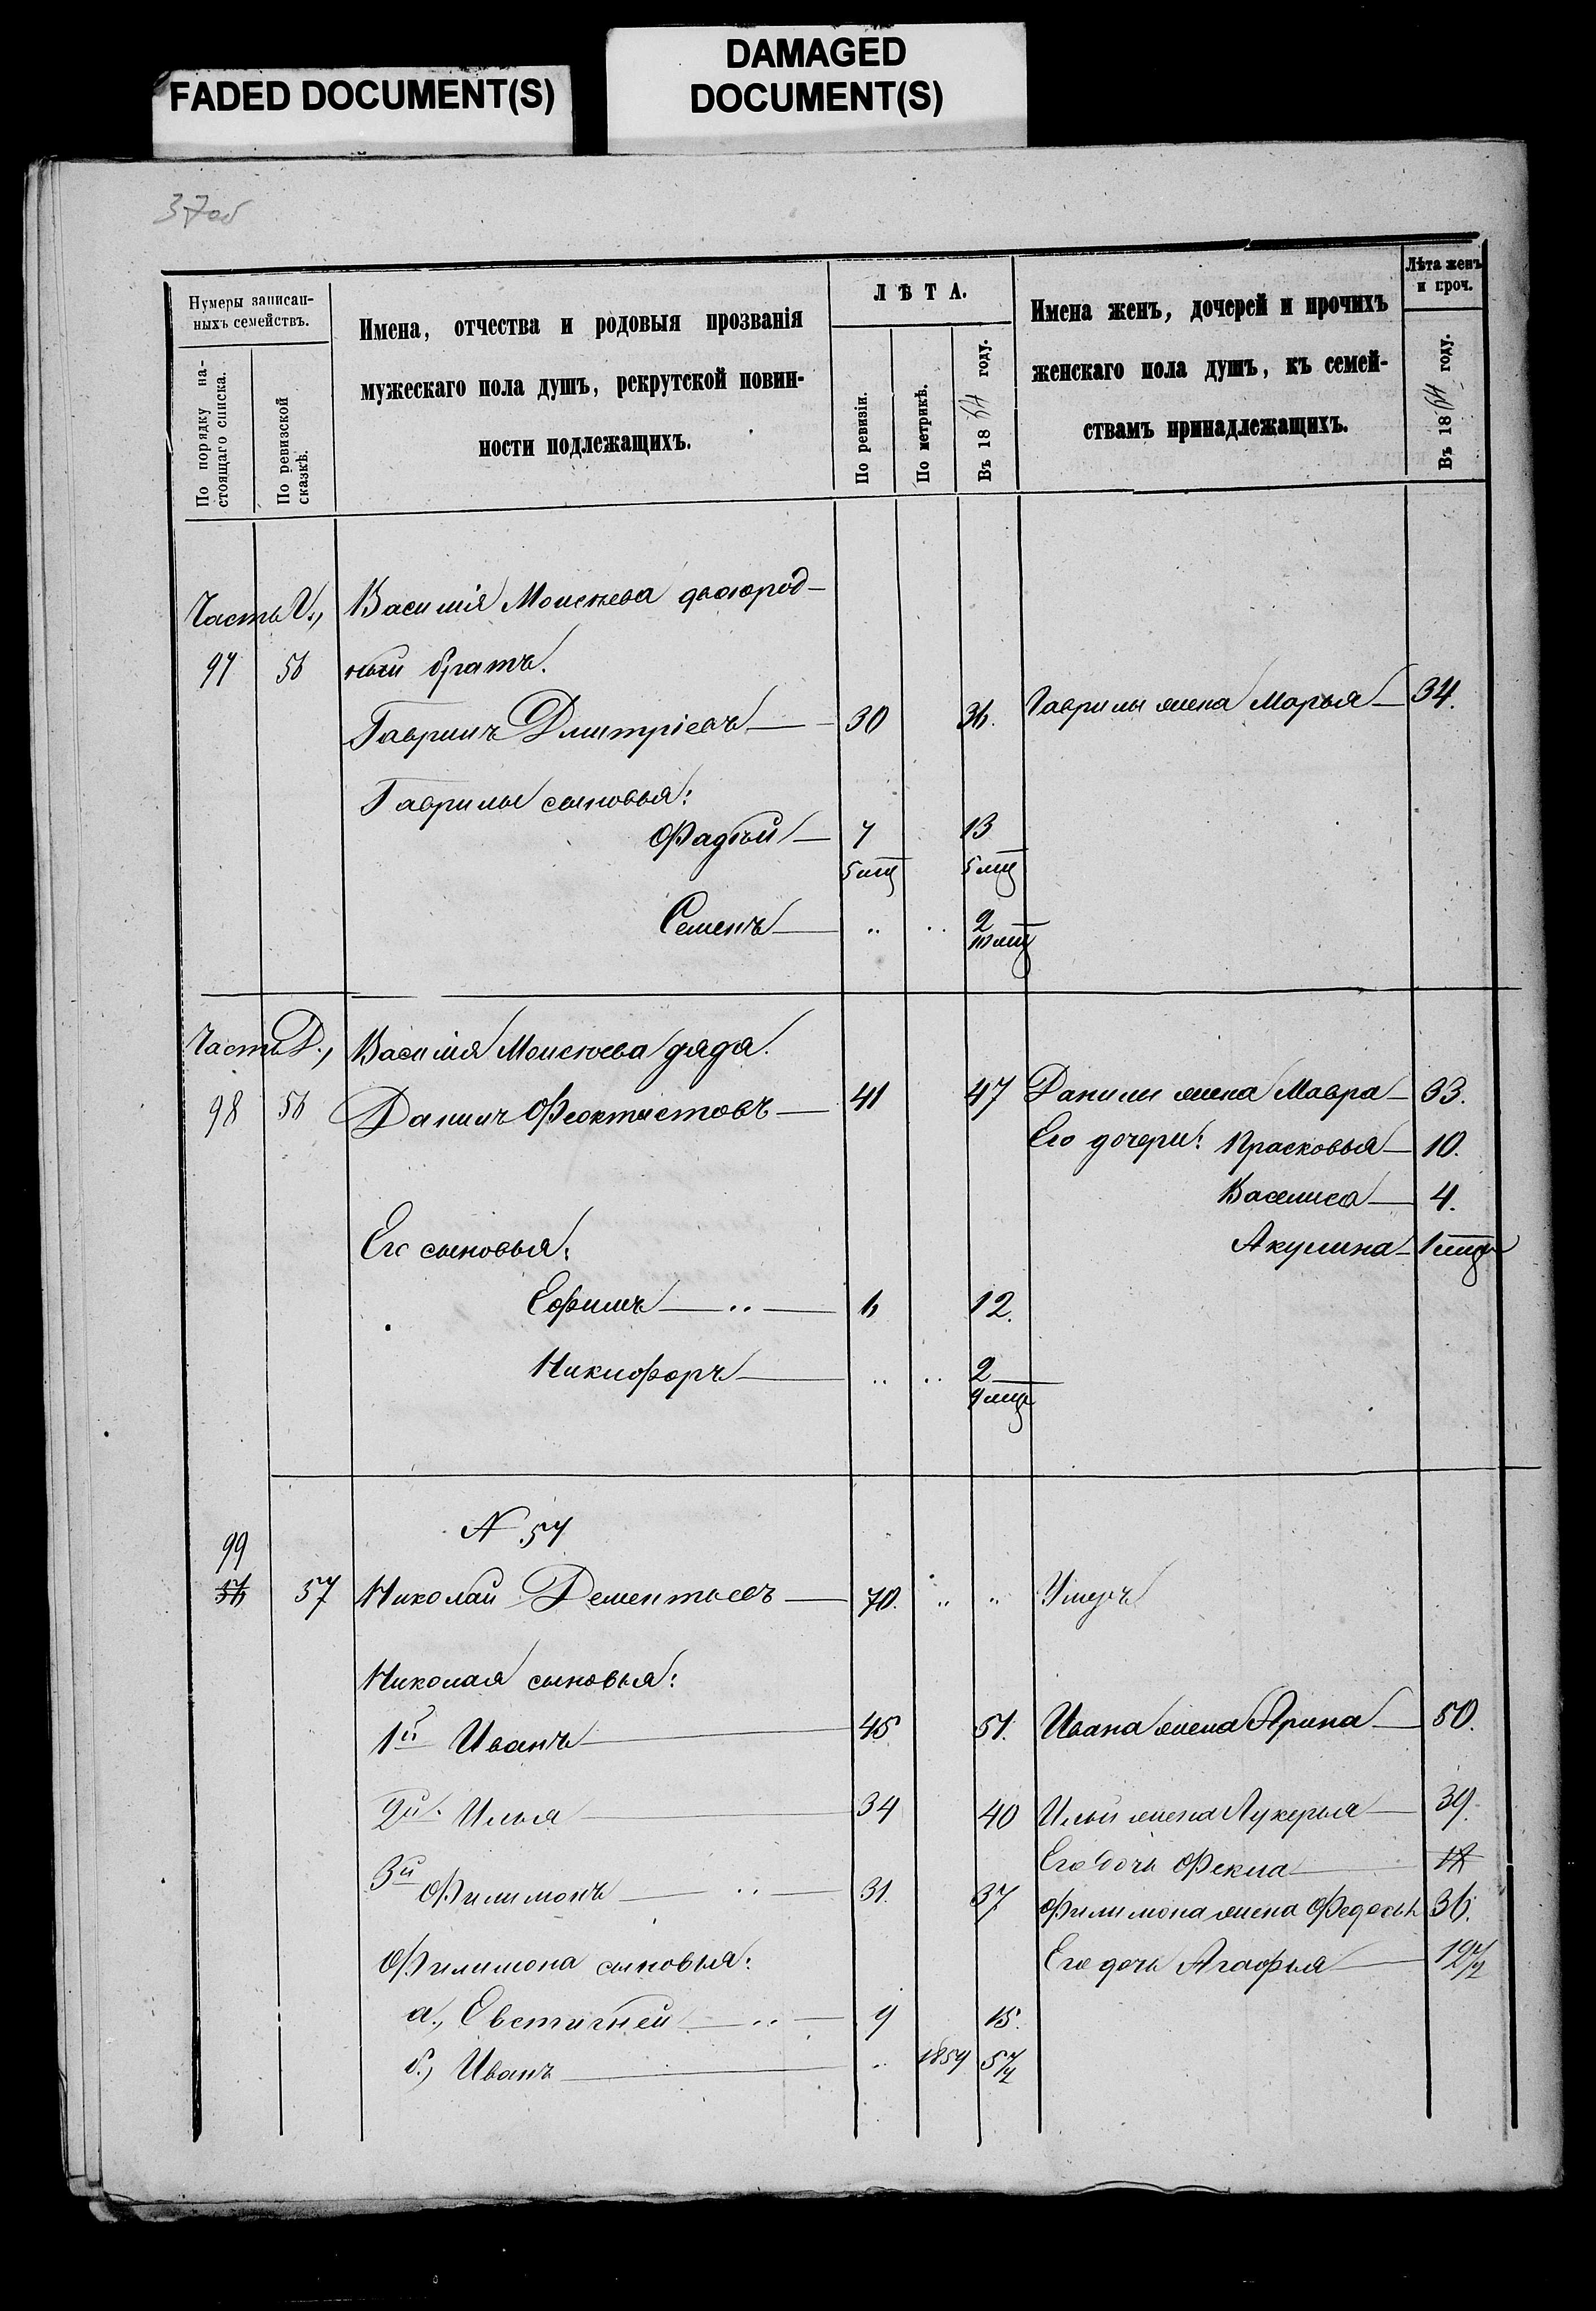 FADED DOCUMENT(S)
DAMAGED
DOCUMENT(S)
37об
Нумеры записан-
ныхъ семействъ.
По порядку на-
стоящаго списка.
По ревизской
сказкѣ.
Имена, отчества и родовыя прозванія
мужескаго пола душъ, рекрутской повин-
ности подлежащихъ.
ЛѢТА.
По ревизіи.
По метрикѣ.
Въ 1864 году.
Имена женъ, дочерей и прочихъ
женскаго пола душъ, къ семей-
ствамъ принадлежащихъ.
Лѣта женъ
и проч.
Въ 1864 году.
Часть Василія Моисѣева двоюрод-
97 56 ный братъ.
Гаврилъ Дмитріевъ 30 36. Гаврилы жена Марья 34.
Гаврилы сыновья:
Фадѣй 7 13
5 мц 5 мц
Семенъ 2
10 мц
Часть Д., Василія Моисѣева дядя.
98 56 Данилъ Феоктистовъ 41 47 Данилы жена Мавра 33.
Его дочери: Прасковья 10.
Василиса 4.
Его сыновья: Акулина 1 мцъ
Ефимъ 6 12.
Никифоръ 2
9 мцъ
N 57
99
56 57 Николай Дементьевъ 70. Умеръ
Николая сыновья:
1й Иванъ 45 51. Ивана жена Арина 50.
2й. Илья 34 40 Ильи жена Лукерья 39.
Его дочь Фекла
3й Филимонъ 31. 37 Филимона жена Федосья 36.
Филимона сыновья: Его дочь Агафья
а., Евстигней 9 15.
б.) Иванъ 1859 5 1/2